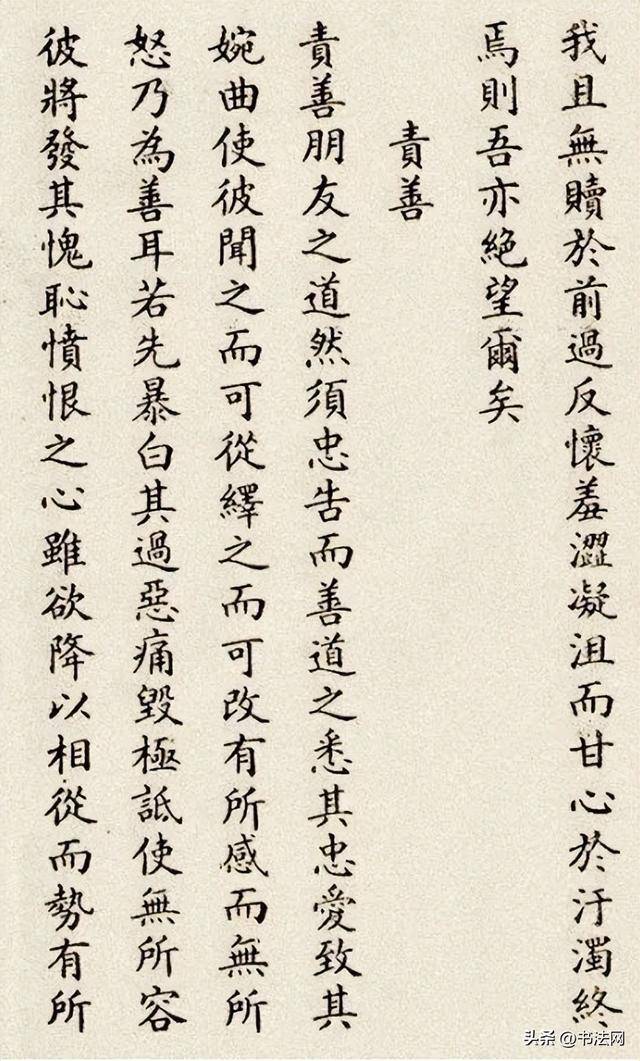 我且無贖於前過反懷羞澀凝沮而甘心於汙濁終
焉則吾亦絕望爾矣
責善
責善朋友之道然須忠告而善道之悉其忠愛致其
婉曲使彼聞之而可從繹之而可改有所感而無所
怒乃為善耳若先暴白其過惡痛毀極詆使無所容
彼將發其愧恥憤恨之心雖欲降以相從而勢有所
头条 @书法网